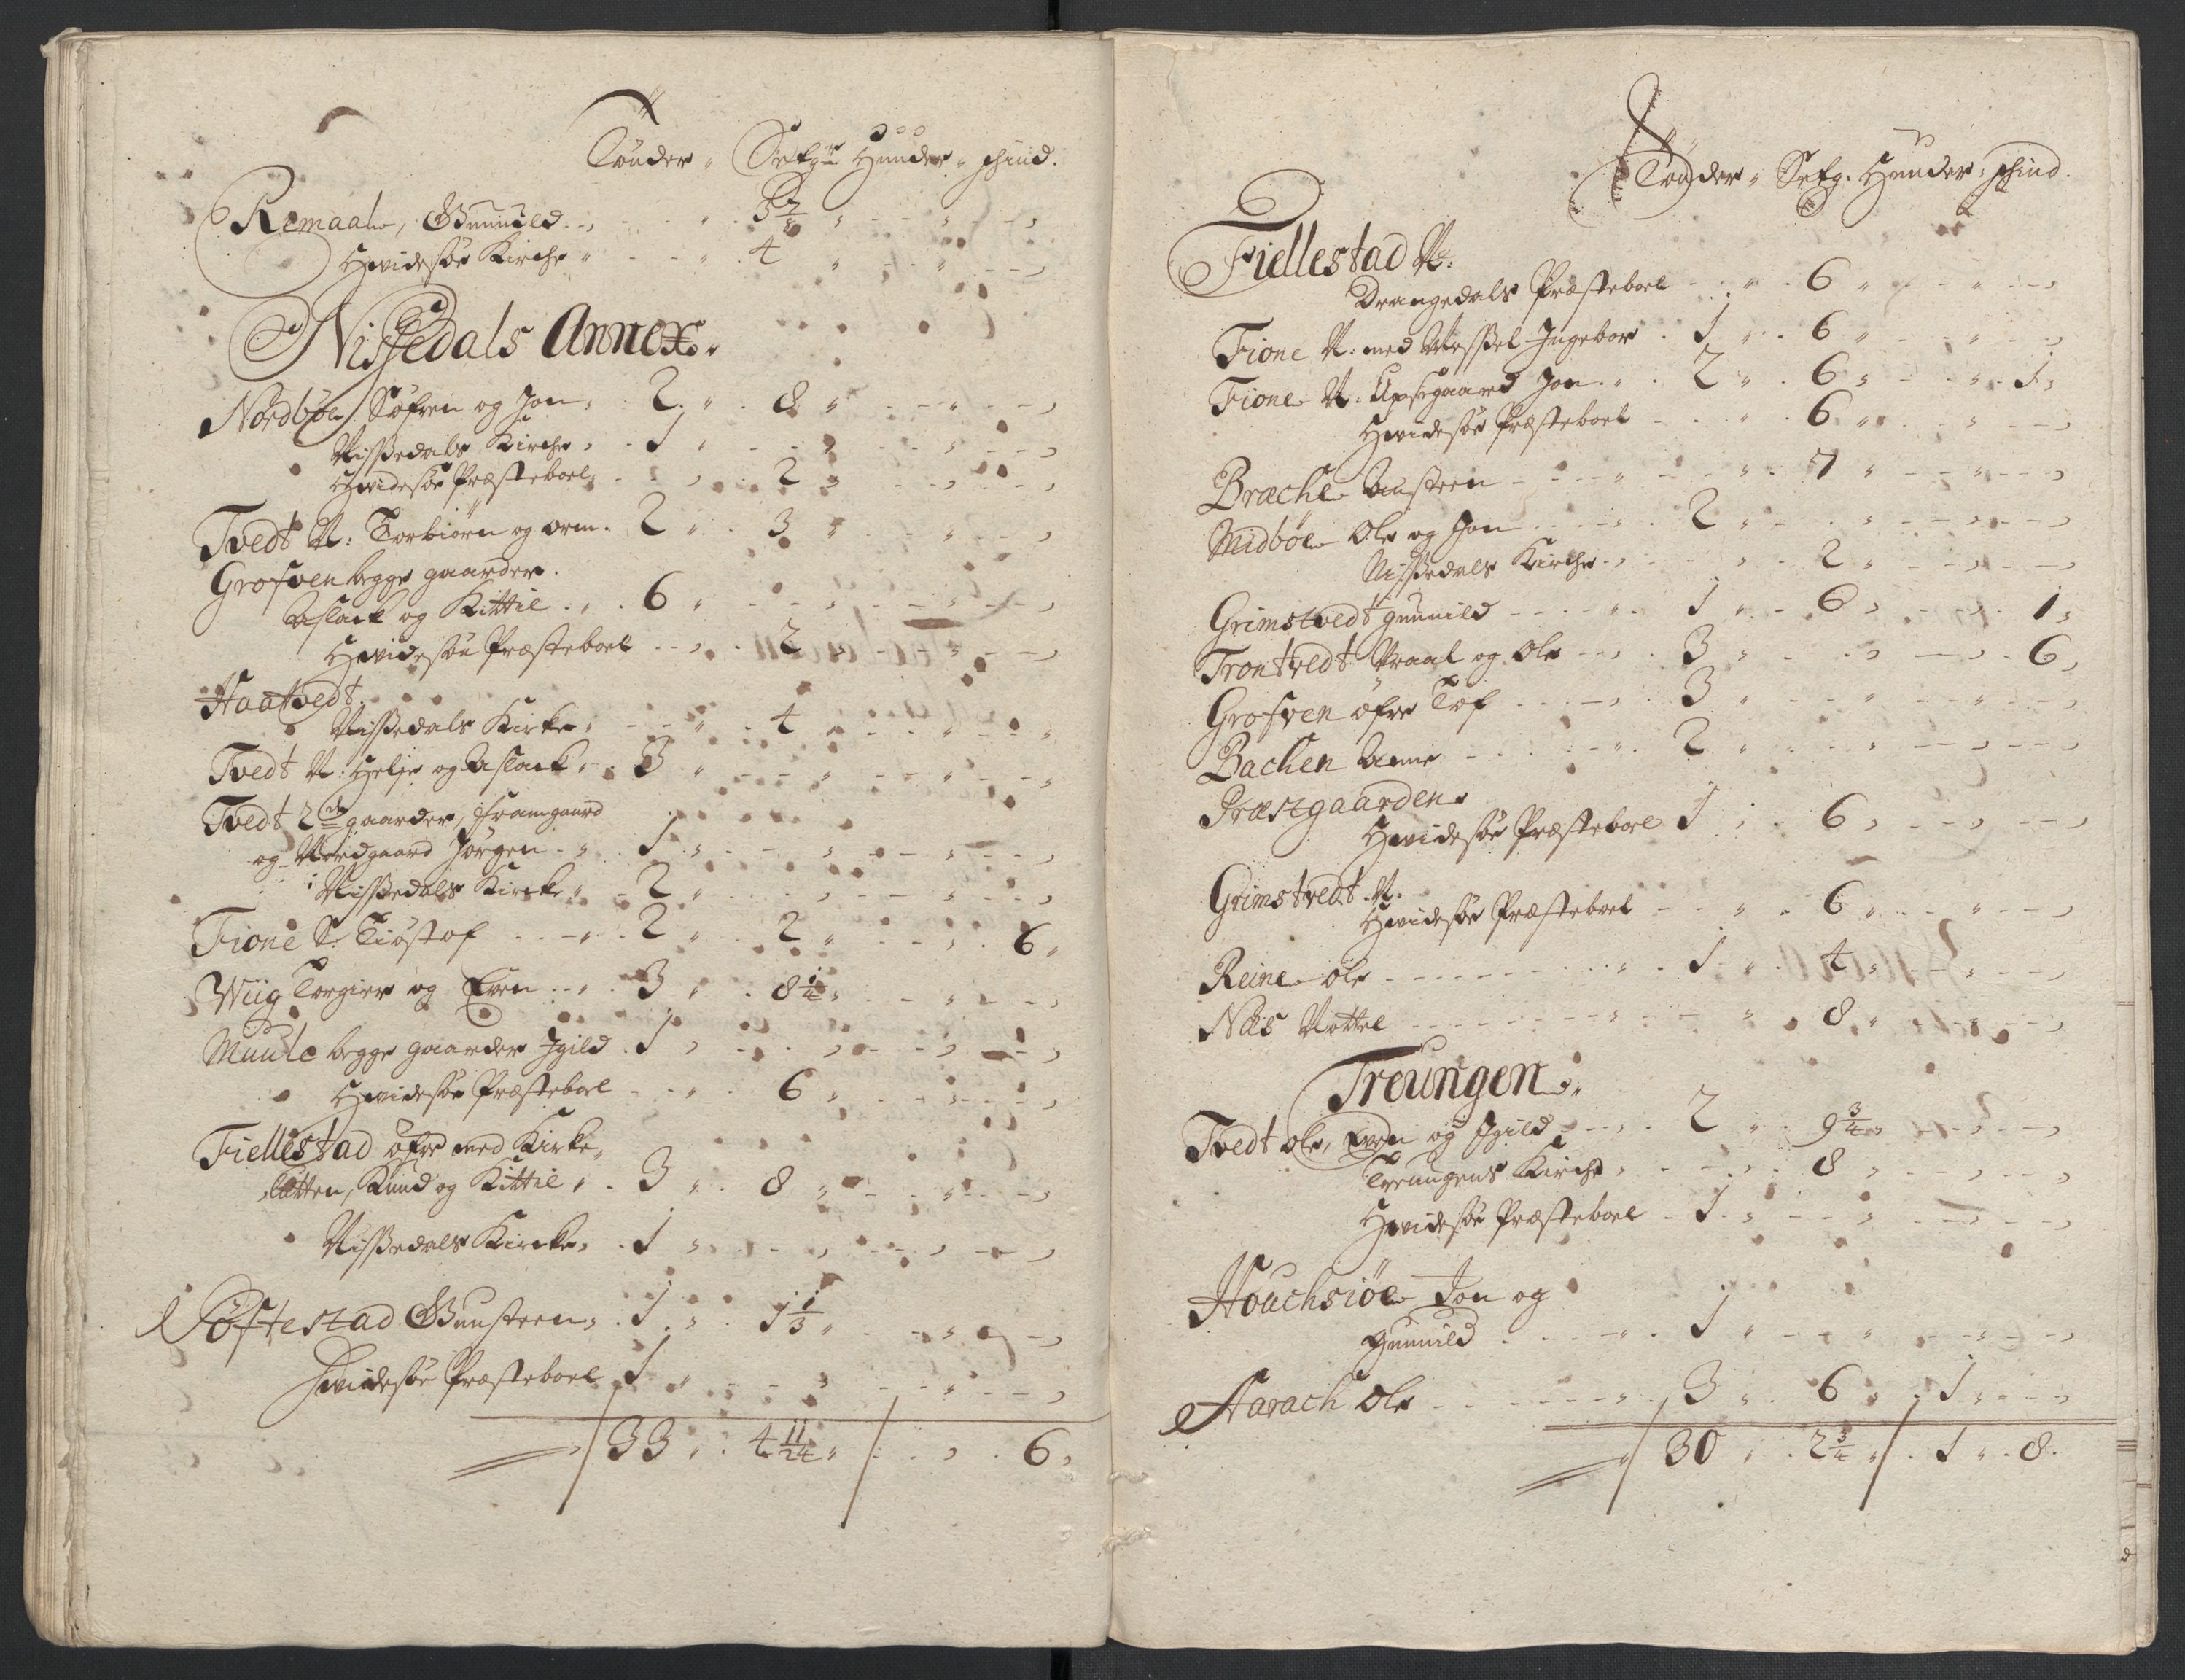 Tønder „ Setg: Huuder „ schind.
Remaal, Gunnild . . 3 7/8 „
Hvidesøe Kirche „ 4 „
Nissedals Annex.
Nordbøe, Søfren og Jon . 2 . 8 „
Nissedals Kirche . 1 „
Hvidesøe Præsteboel 2 „
Tvedt N: Torbiørn og Orm . 2 „ 3 „
Grofven begge gaarder .
Aslack og Kittil . 6 „
Hvidesøe Præsteboel 2 „
Haatvedt.
Nissedals Kirke . 4 „
Tvedt N: Helje og Aslack . 3 „
Tvedt 2de gaarder, Framgaard
og Nordgaard Jørgen . 1 „
Nissedals Kircke „ 2 „
Fione S. Tiøstof . 2 „ 2 „ 6 „
Wiig Torgier og Even . 3 „ 8 1/4 „
Muule begge gaarder Igild . 1 „
Hvidesøe Præsteboel 6 „
Fiellestad øfre med Kirke
, Knud og Kittil . 3 „ 8 „
Nissedals Kircke . 1 „
Tøftestad Gunsteen . 1 „ 1 1/3 „
Hvidesøe Præsteboel 1 „
33 „ 4 11/24 „ 6 „
Tønder „ Setg. Huuder „ schind.
Fiellestad N:
Drangedals Præsteboel 6 „
Fione N: med Nessel Ingebor . 1 „ 6 „
Fione N: Upsegaard Jon . 2 „ 6 „ 1 „
Hvidesøe Præsteboel 6 „
Brache Austeen 7 „
Midbøe Ole og Jon 2 „
Nissedals Kirche 2 „
Grimstvedt gunnild 1 „ 6 „ 1 „
Trontvedt Vraal og Ole 3 „ 6 „
Grofven øfre Tof 3 „
Bachen Anne 2 „
Præstgaarden
Hvidesøe Præsteboel 1 „ 6 „
Grimstvedt. N.
Hvidesøe Præsteboel 6 „
Reine ole 1 „ 4 „
Næs Nottel 8 „
Treungen.
Tvedt ole, Even og Igild 2 „ 9 3/4 „
Treungens Kirche 8 „
Hvidesøe Præsteboel 1 „
Houchsiøe Jon og
gunnild 1 „
Aarach Ole 3 „ 6 „ 1 „
30 „ 2 3/4 „ 1 „ 8.